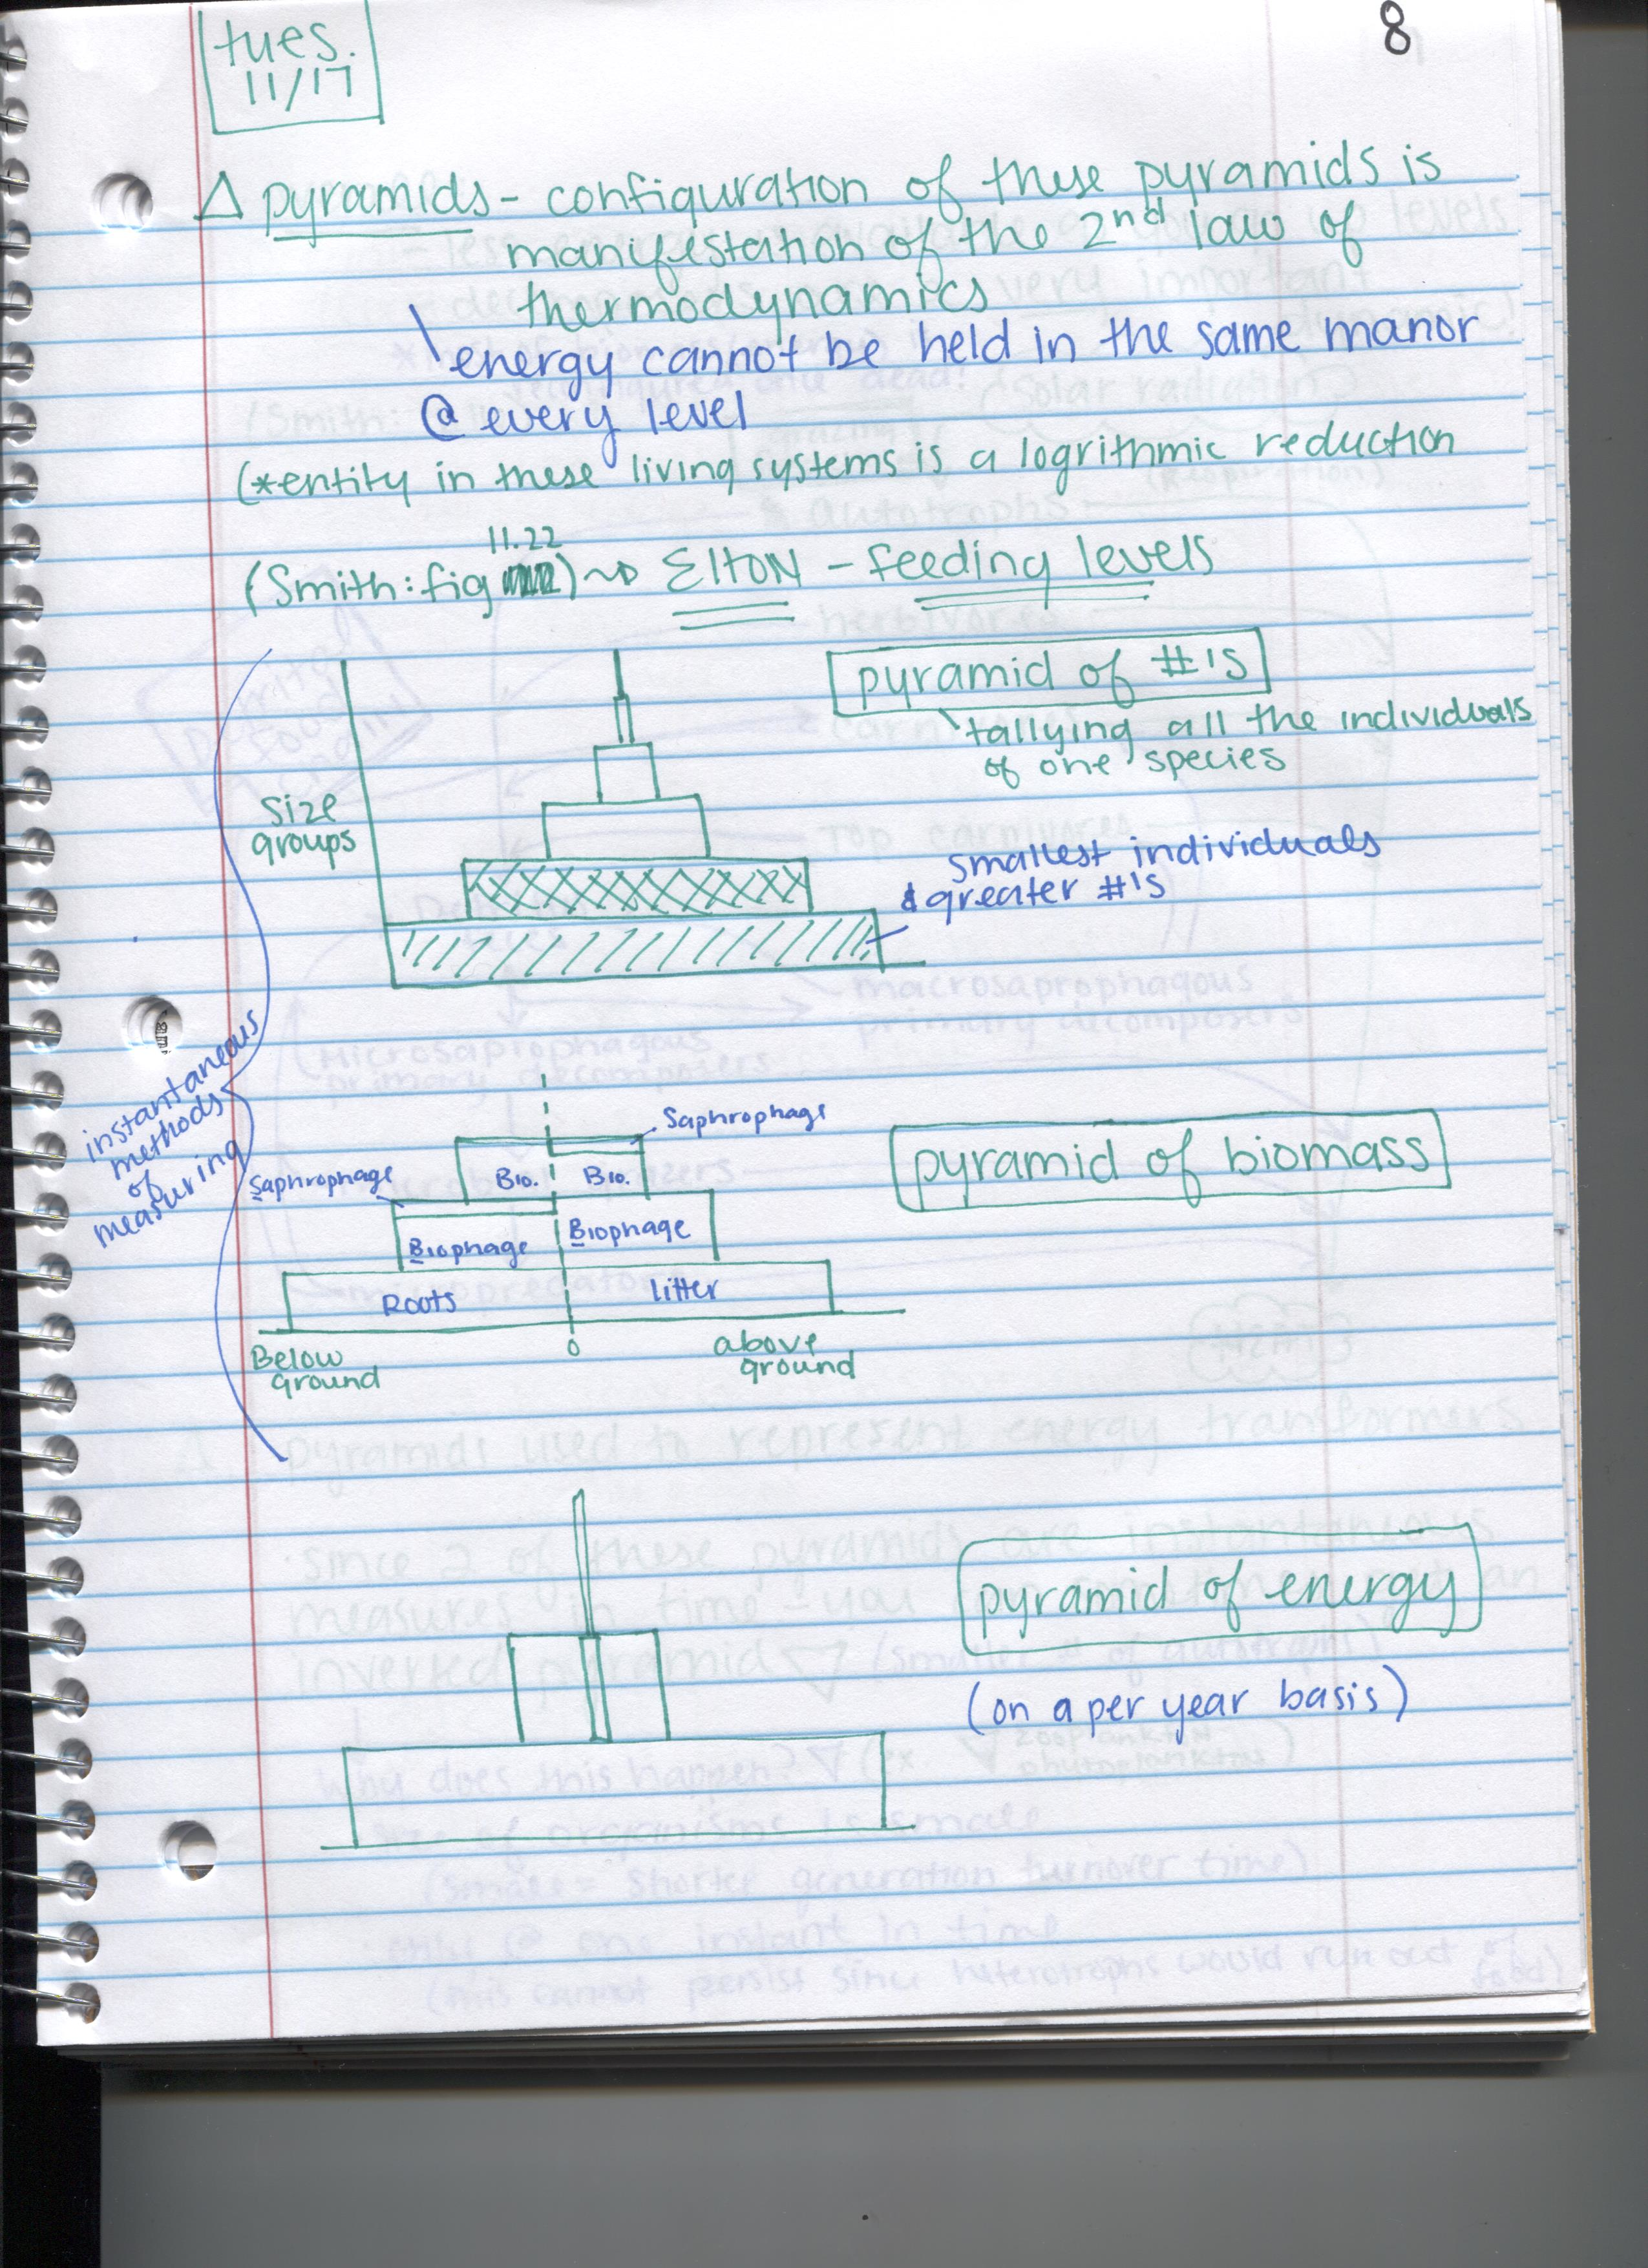 8
tues.
11/17
△ pyramids - configuration of these pyramids is
manifestation of the 2nd law of
thermodynamics
energy cannot be held in the same manor
@ every level
(*entity in these living systems is a logrithmic reduction
11.22
(Smith: fig ) ~> Elton - feeding levels
pyramid of #'s
tallying all the individuals
of one species
size
groups
smallest individuals
& greater #'s
instantaneous
methods
of
measuring
Saphrophage
Saphrophage
Bio. Bio.
Biophage Biophage
Roots litter
Below
ground
0
above
ground
pyramid of biomass
pyramid of energy
(on a per year basis)